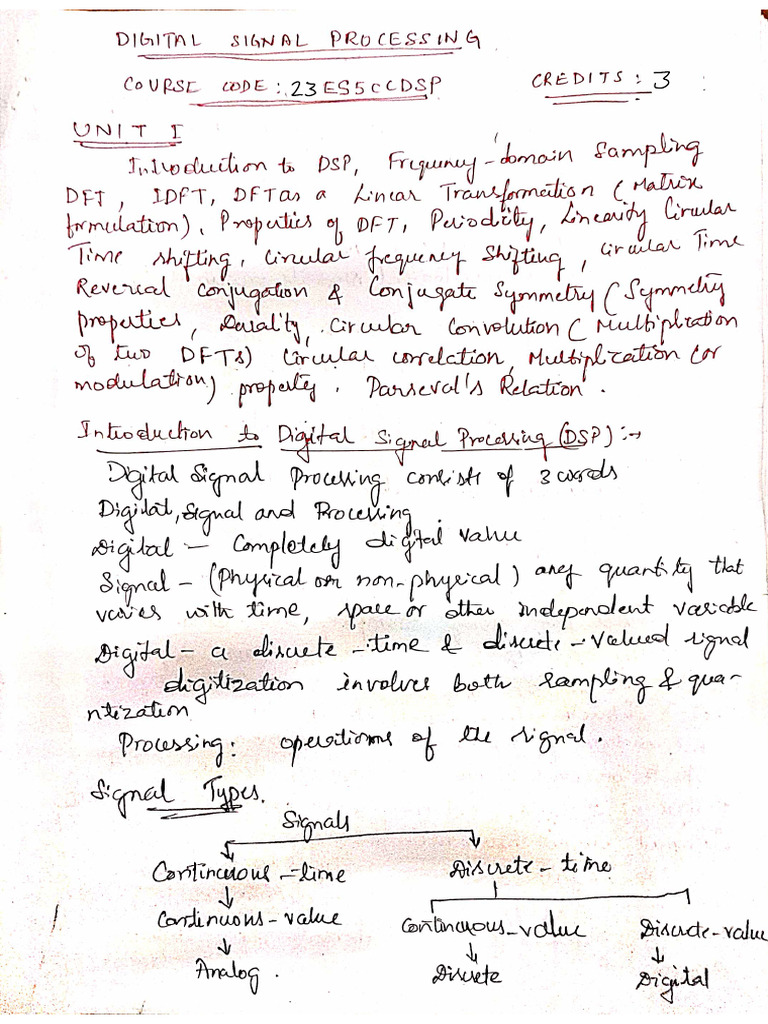 DIGITAL SIGNAL PROCESSING
COURSE CODE: 23ES5CCDSP CREDITS: 3
UNIT I
Introduction to DSP, Frequency-domain Sampling
DFT, IDFT, DFT as a Linear Transformation (Matrix
formulation), Properties of DFT, Periodicity, Linearity Circular
Time shifting, Circular frequency Shifting, Circular Time
Reversal Conjugation & Conjugate Symmetry (Symmetry
properties, Duality, Circular Convolution (Multiplication
of two DFTs) Circular correlation, Multiplication (or
modulation) property. Parseval's Relation.
Introduction to Digital Signal Processing (DSP):-
Digital Signal Processing consists of 3 words
Digital, Signal and Processing.
Digital - Completely digital value
Signal - (Physical or non-physical) any quantity that
varies with time, space or other independent variable
Digital - a discrete-time & discrete-valued signal
digitization involves both sampling & qua-
ntization
Processing: operations of the signal.
Signal Types.
Signals
Continuous-time Discrete-time
Continuous-value Continuous-value Discrete-value
Analog. Discrete Digital